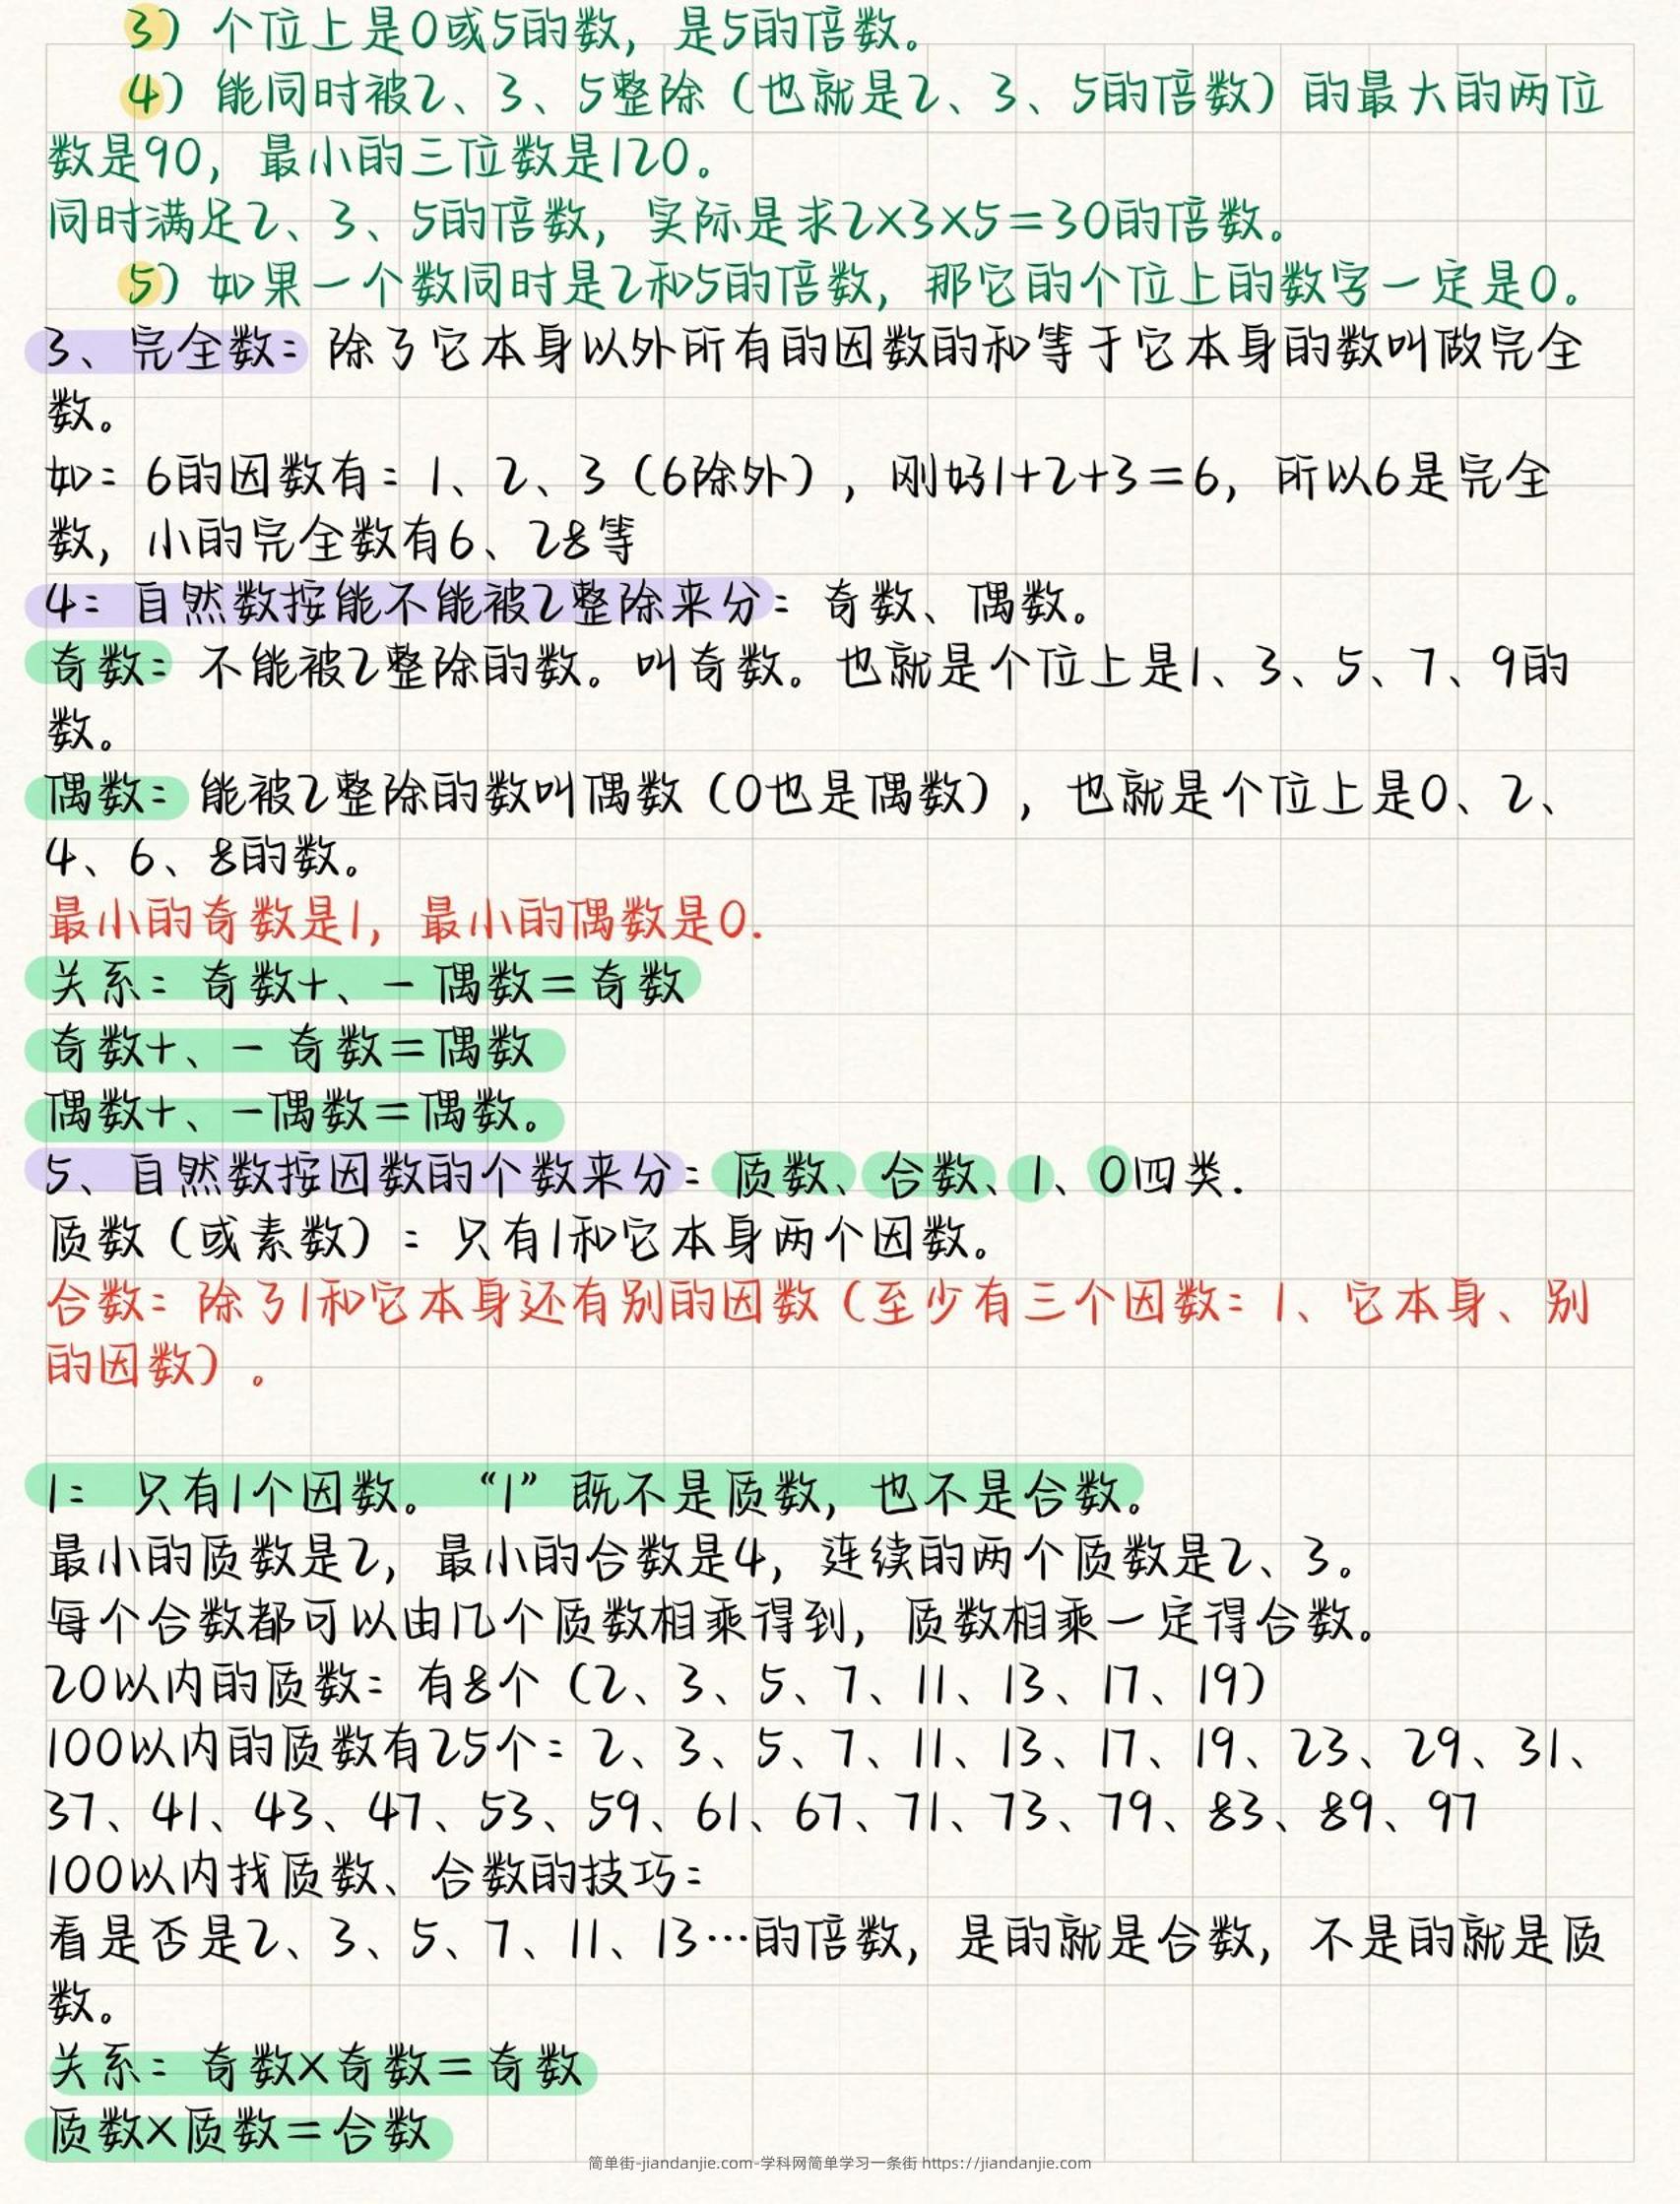 3）个位上是0或5的数，是5的倍数。
4）能同时被2、3、5整除（也就是2、3、5的倍数）的最大的两位
数是90，最小的三位数是120。
同时满足2、3、5的倍数，实际是求2×3×5＝30的倍数。
5）如果一个数同时是2和5的倍数，那它的个位上的数字一定是0。
3、完全数：除了它本身以外所有的因数的和等于它本身的数叫做完全
数。
如：6的因数有：1、2、3（6除外），刚好1+2+3＝6，所以6是完全
数，小的完全数有6、28等
4：自然数按能不能被2整除来分：奇数、偶数。
奇数：不能被2整除的数。叫奇数。也就是个位上是1、3、5、7、9的
数。
偶数：能被2整除的数叫偶数（0也是偶数），也就是个位上是0、2、
4、6、8的数。
最小的奇数是1，最小的偶数是0.
关系：奇数+、－偶数＝奇数
奇数+、－奇数＝偶数
偶数+、－偶数＝偶数。
5、自然数按因数的个数来分：质数、合数、1、0四类.
质数（或素数）：只有1和它本身两个因数。
合数：除了1和它本身还有别的因数（至少有三个因数：1、它本身、别
的因数）。
1：只有1个因数。“1”既不是质数，也不是合数。
最小的质数是2，最小的合数是4，连续的两个质数是2、3。
每个合数都可以由几个质数相乘得到，质数相乘一定得合数。
20以内的质数：有8个（2、3、5、7、11、13、17、19）
100以内的质数有25个：2、3、5、7、11、13、17、19、23、29、31、
37、41、43、47、53、59、61、67、71、73、79、83、89、97
100以内找质数、合数的技巧：
看是否是2、3、5、7、11、13…的倍数，是的就是合数，不是的就是质
数。
关系：奇数×奇数＝奇数
质数×质数＝合数
简单街-jiandanjie.com-学科网简单学习一条街 https://jiandanjie.com